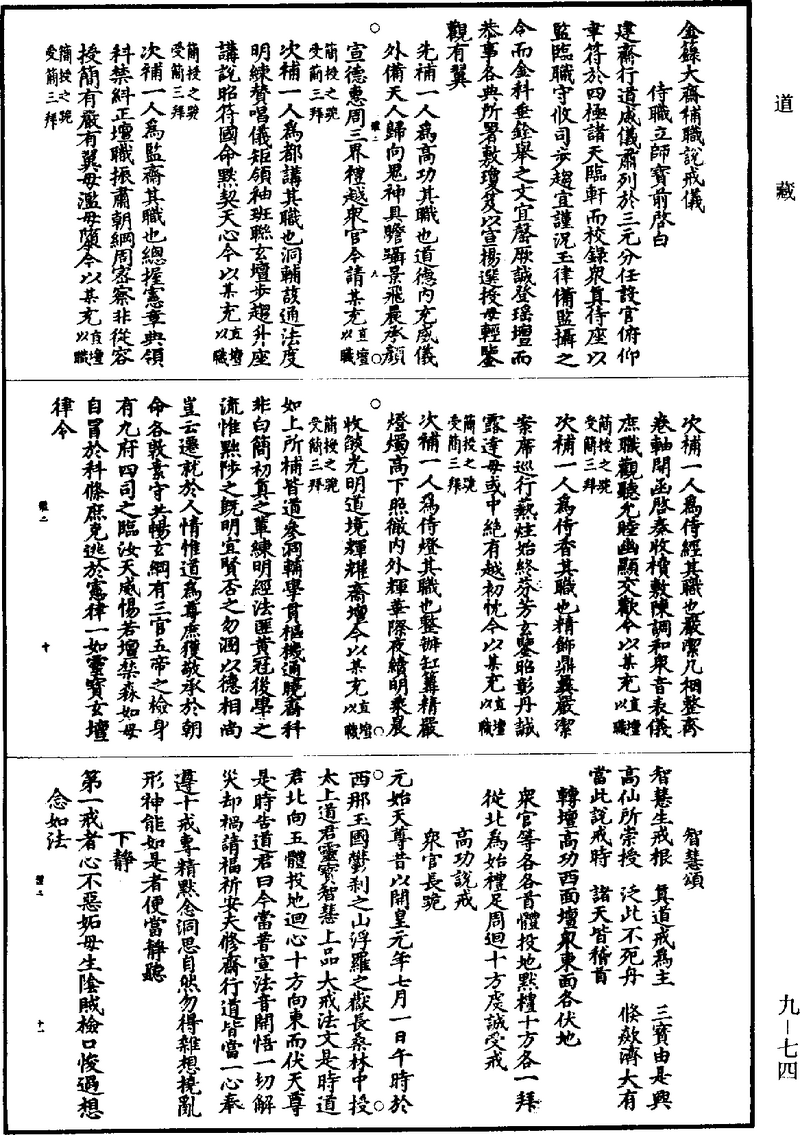 道藏
金籙大齋補職說戒儀
侍職立師寶前啓白
建齋行道威儀肅列於三元分任設官俯仰
韋符於四極諸天臨軒而校錄衆真侍座以
監臨職守攸司步趨宜謹況玉律備監攝之
令而金科垂銓舉之文宜罄厥誠登瑤壇而
恭事各典所署敷瓊笈以宣揚選授毋輕鑒
觀有翼
先補一人爲高功其職也道德內充威儀
外備天人歸向鬼神具瞻躡景飛晨承顏
宣德惠周三界禮越衆官今請某充直壇以職
簡授之跪
受簡三拜
次補一人爲都講其職也洞輔該通法度
明練贊唱儀矩領袖班聯玄壇步趨升座
講說昭符國命默契天心今以某充直壇以職
簡授之跪
受簡三拜
次補一人爲監齋其職也總握憲章典領
科禁糾正壇職振肅朝綱周密察非從容
授簡有嚴有翼毋濫毋隳今以某充直壇以職
簡授之跪
受簡三拜
次補一人爲侍經其職也嚴潔几桉整齊
卷軸開函啓奏收櫝敷陳調和衆音表儀
庶職觀聽允睦幽顯交歡今以某充直壇以職
簡授之跪
受簡三拜
次補一人爲侍香其職也精飾鼎彝嚴潔
案席巡行爇炷始終芬芳玄鑒昭彰丹誠
露達毋或中絶有越初忱今以某充直壇以職
簡授之跪
受簡三拜
次補一人爲侍燈其職也整辦缸篝精嚴
燈燭高下照徹內外輝華際夜續明乘晨
收燄光明道境輝耀齋壇今以某充直壇以職
簡授之跪
受簡三拜
如上所補皆道參洞輔學貫樞機通曉齋科
非白簡初真之輩練明經法匪黃冠後學之
流惟黜陟之旣明宜賢否之勿溷以德相尚
豈云遷就於人情惟道爲尊庶獲敬承於朝
命各敦素守共暢玄綱有三官五帝之檢身
有九府四司之臨汝天威惕若壇禁森如毋
自冒於科條庶克逃於憲律一如靈寶玄壇
律令
智慧頌
智慧生戒根　真道戒爲主　三寶由是興
高仙所崇授　泛此不死舟　倐歘濟大有
當此說戒時　諸天皆稽首
轉壇高功西面壇衆東面各伏地
衆官等各各首體投地默禮十方各一拜
從北爲始禮足周迴十方虔誠受戒
高功說戒
衆官長跪
元始天尊昔以開皇元年七月一日午時於
西那玉國鬱刹之山浮羅之嶽長桑林中投
太上道君靈寶智慧上品大戒法文是時道
君北向五體投地迴心十方向東而伏天尊
是時告道君曰今當普宣法音開悟一切解
災却禍請福祈安夫修齋行道皆當一心奉
遵十戒專精默念洞思自然勿得雜想撓亂
形神能如是者便當靜聽
下靜
第一戒者心不惡妬毋生陰賊檢口悛過想
念如法
九－七四